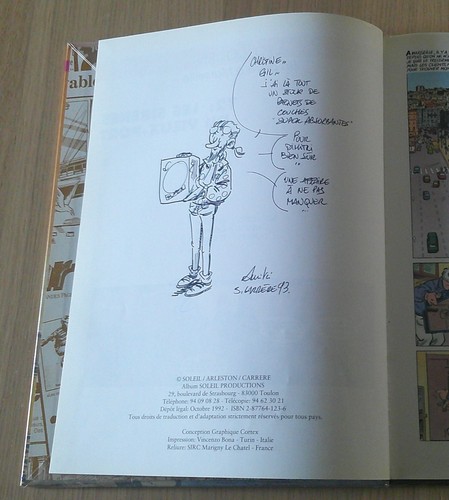 GIL..
J'AI LÀ TOUT
UN
DE
COUCHES
"SUPER ABSORBANTES"
POUR
DIMITRI
BIEN SÛR
UNE AFFAIRE
À NE PAS
MANQUER
S. CARRÈRE 93.
© SOLEIL / ARLESTON / CARRERE
Album SOLEIL PRODUCTIONS
29, boulevard de Strasbourg - 83000 Toulon
Téléphone: 94 09 08 28 - Télécopie: 94 62 30 21
Dépôt légal: Octobre 1992 - ISBN 2-87764-123-6
Tous droits de traduction et d'adaptation strictement réservés pour tous pays.
Conception Graphique Cortex
Impression: Vincenzo Bona - Turin - Italie
Reliure: SIRC Marigny Le Chatel - France